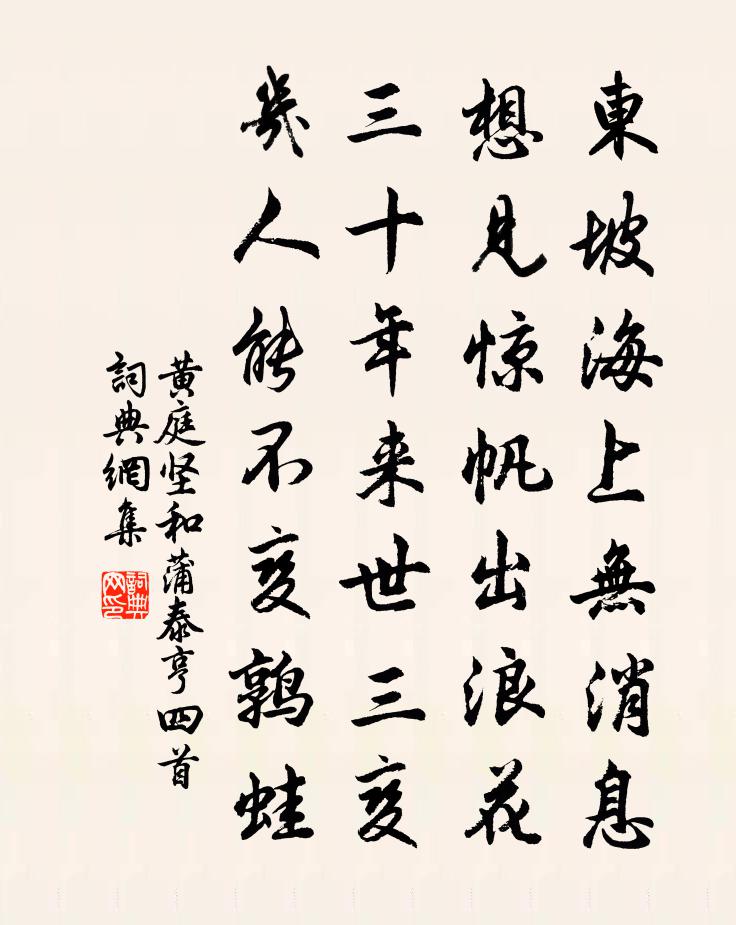 東坡海上無消息
想見惊帆出浪花
三十年来世三变
幾人能不变鹑蛙
黄庭坚和蒲泰亨四首
詞典網集
詞典网印